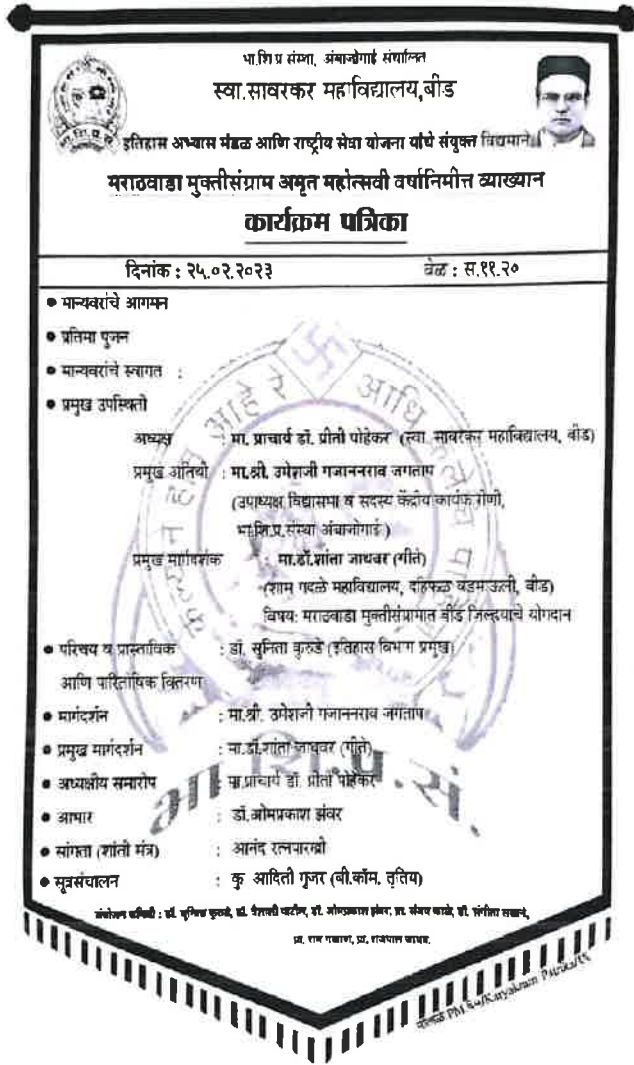 भा.शि.प्र संस्था, अंबाजोगाई संचालित
स्वा.सावरकर महाविद्यालय,बीड
इतिहास अभ्यास मंडळ आणि राष्ट्रीय सेवा योजना यांचे संयुक्त विद्यमाने
मराठवाडा मुक्तीसंग्राम अमृत महोत्सवी वर्षानिमीत्त व्याख्यान
कार्यक्रम पत्रिका
दिनांक : २५.०२.२०२३ वेळ : स.११.२०
● मान्यवरांचे आगमन
● प्रतिमा पुजन
● मान्यवरांचे स्वागत :
● प्रमुख उपस्थिती
अध्यक्ष मा. प्राचार्य डॉ. प्रीती पोहेकर (स्वा. सावरकर महाविद्यालय, बीड)
प्रमुख अतिथी : मा.श्री. उमेशजी गजाननराव जगताप
(उपाध्यक्ष विद्यासभा व सदस्य केंद्रीय कार्यकारीणी,
भा.शि.प्र.संस्था अंबाजोगाई)
प्रमुख मार्गदर्शक : मा.डॉ.शांता जाधवर (गीते)
(शाम गदळे महाविद्यालय, दहिफळ वडमाऊली, बीड)
विषय: मराठवाडा मुक्तीसंग्रामात बीड जिल्ह्याचे योगदान
● परिचय व प्रास्ताविक : डॉ. सुनिता कुरुडे (इतिहास विभाग प्रमुख)
आणि पारितोषिक वितरण
● मार्गदर्शन : मा.श्री. उमेशजी गजाननराव जगताप
● प्रमुख मार्गदर्शन : मा.डॉ.शांता जाधवर (गीते)
● अध्यक्षीय समारोप मा.प्राचार्य डॉ. प्रीती पोहेकर
● आभार : डॉ.ओमप्रकाश झंवर
● सांगता (शांती मंत्र) : आनंद रत्नपारखी
● सूत्रसंचालन : कु आदिती गुजर (बी.कॉम. तृतिय)
डॉ. सुनिता कुरुडे, डॉ. ओमप्रकाश झंवर,
भा.शि.प्र.सं.